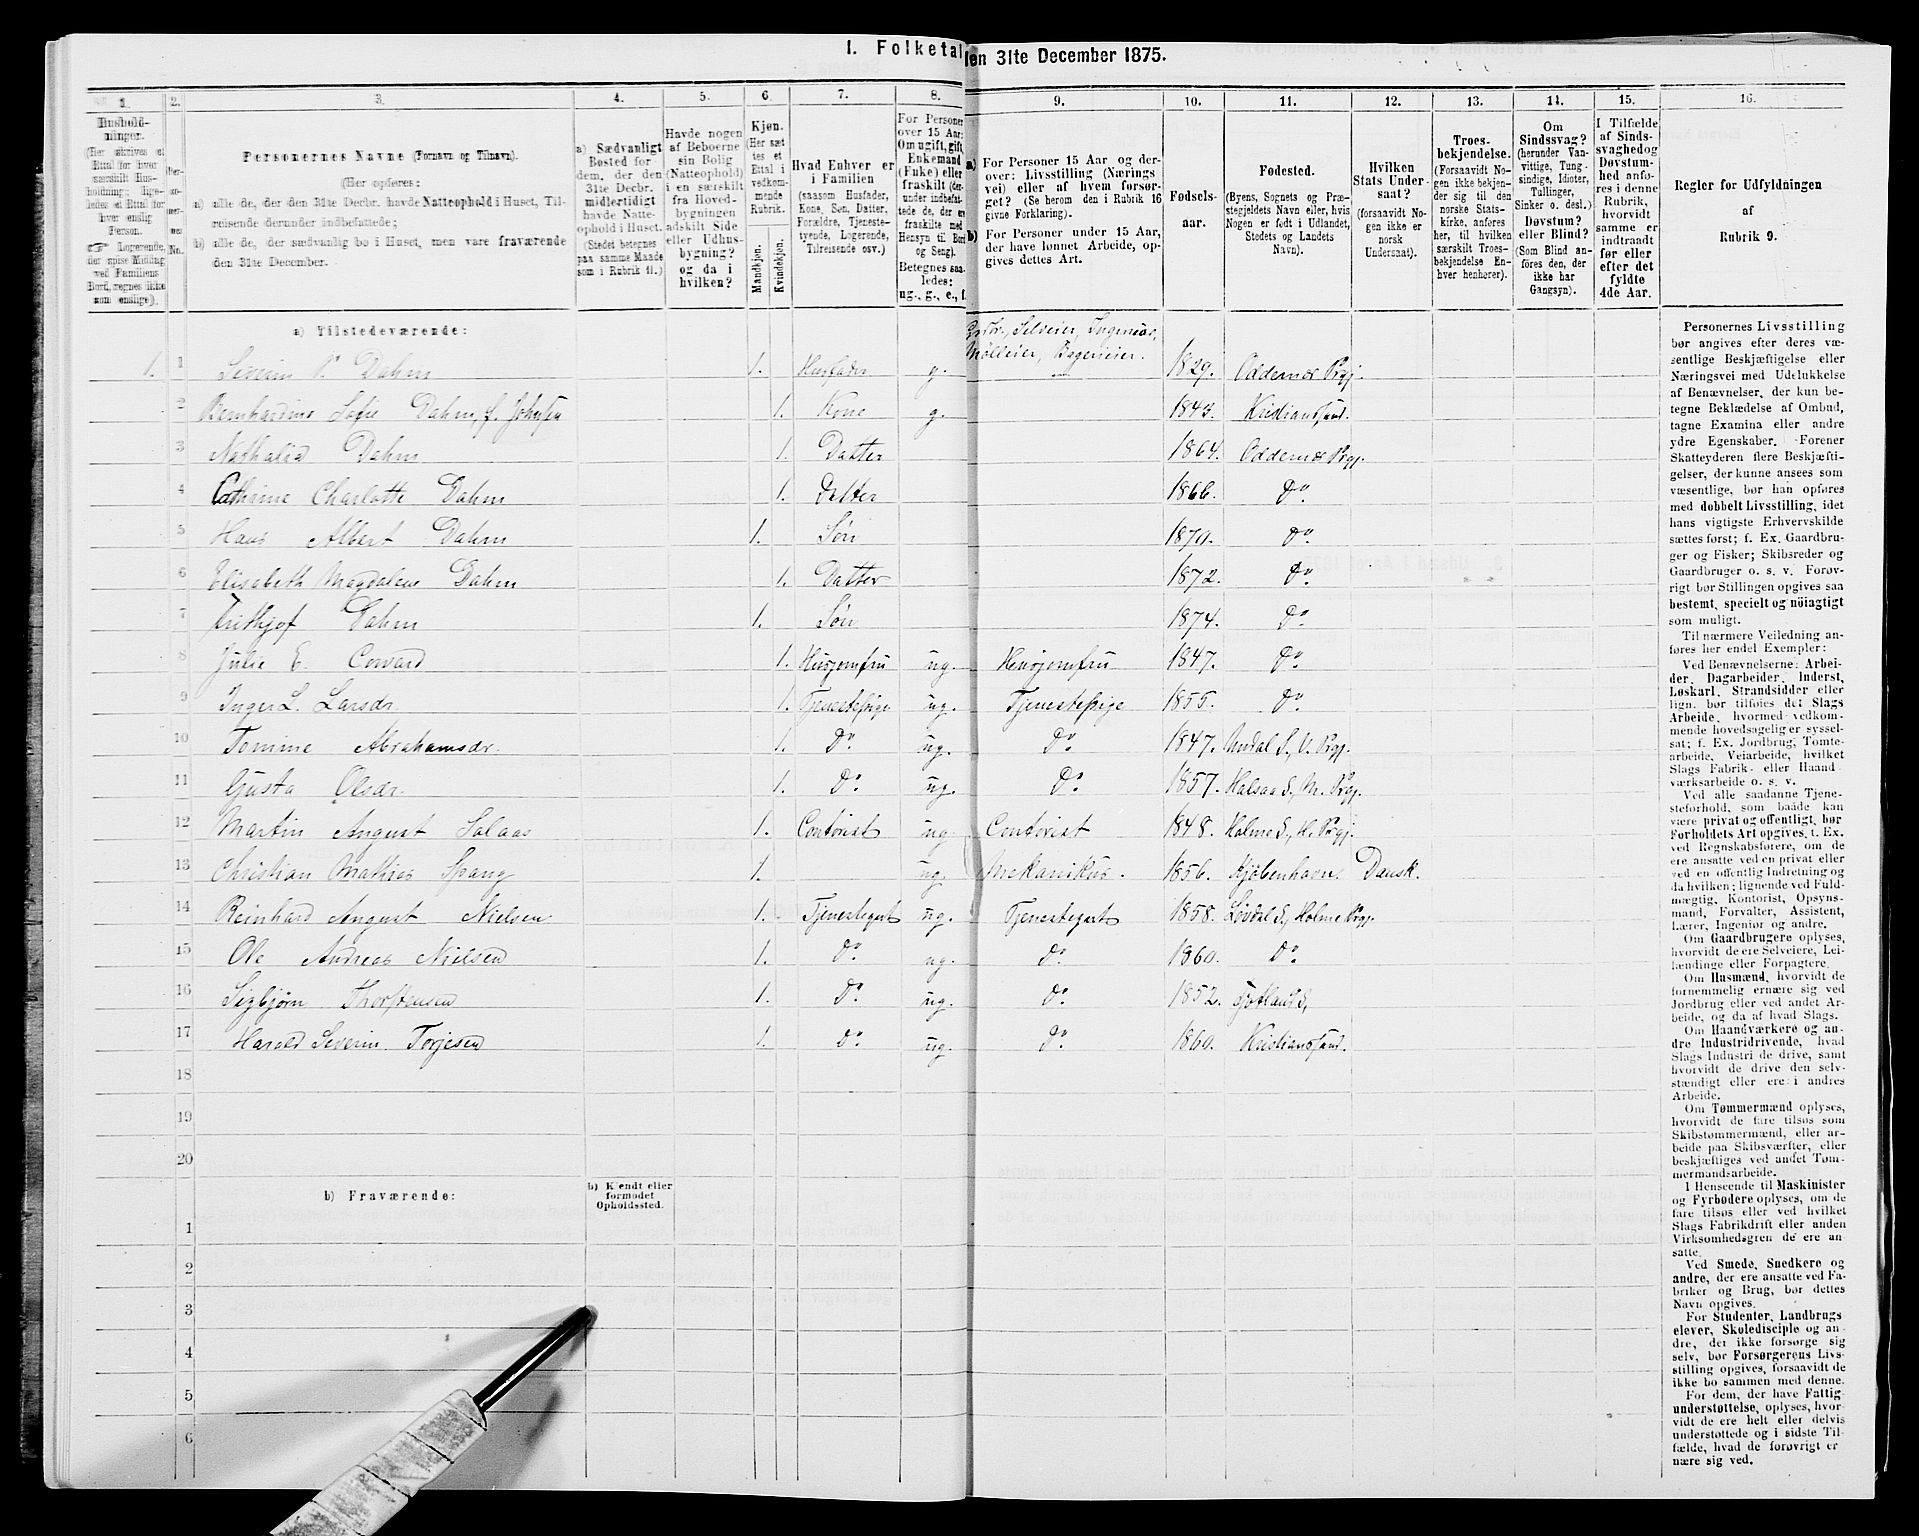 1. Folketal den 31te December 1875.
1. 2. 3. 4. 5. 6. 7. 8. 9. 10. 11. 12. 13. 14. 15. 16.
Hushold-
ninger.
(Her skrives et
Ettal for hver
særskilt Hus-
holdning; lige-
ledes et Ettal
for hver
enslig
Person.
☞ Logerende,
der spise Middag
ved Familiens
Bord, regnes ikke
som enslige).
Per-
so-
ner-
nes
No.
Personernes Navne (Fornavn og Tilnavn).
(Her opføres:
a) alle de, der den 31te Decbr. havde Natteophold i Huset, Til-
reisende derunder indbefattede;
b) alle de, der sædvanlig bo i Huset, men vare fraværende
den 31te December.
a) Sædvanligt
Bosted for
dem, der den
31te Decbr.
midlertidigt
havde Natte-
ophold i Huset.
(Stedet betegnes
paa samme Maade
som i Rubrik 11.)
Havde nogen
af Beboerne
sin Bolig
(Natteophold)
i en særskilt
fra Hoved-
bygningen
adskilt Side
eller Udhus-
bygning?
og da i
hvilken?
Kjøn.
(Her sæt-
tes et
Ettal i
vedkom-
mende
Rubrik.
Mandkjøn.
Kvindekjøn.
Hvad Enhver er
i Familien
(saasom Husfader,
Kone, Søn, Datter,
Forældre, Tjeneste-
tyende, Logerende,
Tilreisende osv.)
For Personer
over 15 Aar:
Om ugift, gift,
Enkemand
(Enke) eller
fraskilt (der-
under indbefat-
tede de, der ere
fraskilte med
Hensyn til Bord
og Seng).
Betegnes saa-
ledes:
ug., g., e., f.
a) For Personer 15 Aar og der-
over: Livsstilling (Nærings
vei) eller af hvem forsør-
get? (Se herom den i Rubrik 16
givne Forklaring).
b) For Personer under 15 Aar,
der have lønnet Arbeide, op-
gives dettes Art.
Fødsels-
aar.
Fødested.
(Byens, Sognets og Præ-
stegjeldets Navn eller, hvis
Nogen er født i Udlandet,
Stedets og Landets
Navn).
Hvilken
Stats Under-
saat?
(forsaavidt No-
gen ikke er
norsk
Undersaat).
Troes-
bekjendelse.
(Forsaavidt No-
gen ikke bekjen-
der sig til den
norske Stats-
kirke, anføres
her, til hvilken
særskilt Troes-
bekjendelse En-
hver henhører).
Om
Sindssvag?
(herunder Van-
vittige, Tung-
sindige, Idioter,
Tullinger,
Sinker o. desl.)
Døvstum?
eller Blind?
(Som Blind an-
føres den, der
ikke har
Gangsyn).
I Tilfælde
af Sinds-
svaghed og
Døvstum-
hed anfø-
res i denne
Rubrik,
hvorvidt
samme er
indtraadt
før eller
efter det
fyldte
4de Aar.
Regler for Udfyldningen
af
Rubrik 9.
a) Tilstedeværende:
Gbr., Selveier, Ingeniør,
Mølleier, Bageri eier.
1. 1 Severin P. Dahm 1. Husfader g. 1829. Oddernæs Prgj.
2 Bernhardine Sofie Dahm, f. Johnsen 1. Kone g. 1843. Kristianssand.
3 Nathalia Dahm 1. Datter 1864. Oddernæs Prgj.
4 Cathrine Charlotte Dahm 1. Datter 1866. Do.
5 Hans Albert Dahm 1. Søn 1870. Do.
6 Elisabeth Magdalene Dahm 1. Datter 1872. Do.
7 Frithjof Dahm 1. Søn 1874. Do.
8 Julie E. Coward 1. Husjomfru ug. Husjomfru 1847. Do.
9 Inger L. Larsdr. 1. Tjenestepige ug. Tjenestepige 1855. Do.
10 Tomine Abrahamsdr. 1. Do. ug. Do. 1847. Undal S., V. Prgj.
11 Gusta Olsdr. 1. Do. ug. Do. 1857. Halsaa S., M. Prgj.
12 Martin August Salaas 1. Contorist ug. Contorist 1848. Holme S., H. Prgj.
13 Christian Mathias Spang 1. ug. Mekanikus. 1856. Kjøbenhavn. Dansk.
14 Reinhard August Nielsen 1. Tjenestegut ug. Tjenestegut 1858. Løvdal S., Holme Prgj.
15 Ole Andreas Nielsen 1. Do. ug. Do. 1860. Do.
16 Sigbjørn Thorstensen 1. Do. ug. Do. 1852.
17 Harald Severin Torjesen 1. Do. ug. Do. 1860. Kristianssand.
18
19
20
b) Fraværende:
b) Kjendt eller
formodet
Opholdssted.
1
2
3
4
5
6
Personernes Livsstilling
bør angives efter deres væ-
sentlige Beskjæftigelse eller
Næringsvei med Udelukkelse
af Benævnelser, der kun be-
tegne Beklædelse af Ombud,
tagne Examina eller andre
ydre Egenskaber. Forener
Skatteyderen flere Beskjæfti-
gelser, der kunne ansees som
væsentlige, bør han opføres
med dobbelt Livsstilling, idet
hans vigtigste Erhvervskilde
sættes først; f. Ex. Gaardbru-
ger og Fisker; Skibsreder og
Gaardbruger o. s. v. Forøv-
rigt bør Stillingen opgives saa
bestemt, specielt og nöiagtigt
som muligt.
Til nærmere Veiledning an-
føres her endel Exempler:
Ved Benævnelserne: Arbei-
der, Dagarbeider, Inderst,
Løskarl, Strandsidder eller
lign. bør tilføies det Slags
Arbeide, hvormed vedkom-
mende hovedsagelig er syssel-
sat; f. Ex. Jordbrug, Tomte-
arbeide, Veiarbeide, hvilket
Slags Fabrik- eller Haand-
værksarbeide o. s. v.
Ved alle saadanne Tjene-
steforhold, som baade kan
være privat og offentligt, bør
Forholdets Art opgives, t. Ex.
ved Regnskabsførere, om de
ere ansatte ved en privat eller
ved en offentlig Indretning og
da hvilken; lignende ved Fuld-
mægtig, Kontorist, Opsyns-
mand, Forvalter, Assistent,
Lærer, Ingeniør og andre.
Om Gaardbrugere oplyses,
hvorvidt de ere Selveiere, Lei-
lændinge eller Forpagtere.
Om Husmænd, hvorvidt de
fornemmelig ernære sig ved
Jordbrug eller ved andet Ar-
beide, og da af hvad Slags.
Om Haandværkere og an-
dre Industridrivende, hvad
Slags Industri de drive, samt
hvorvidt de drive den selv-
stændigt eller ere i andres
Arbeide.
Om Tømmermænd oplyses,
hvorvidt de fare tilsøs som
Skibstømmermænd, eller ar-
beide paa Skibsværfter, eller
beskjæftiges ved andet Tøm-
mermandsarbeide.
I Henseende til Maskinister
og Fyrbødere oplyses, om de
fare tilsøs eller ved hvilket
Slags Fabrikdrift eller anden
Virksomhedsgren de ere an-
satte.
Ved Smede, Snedkere og
andre, der ere ansatte ved Fa-
briker og Brug, bør dettes
Navn opgives.
For Studenter, Landbrugs
elever, Skoledisciple og an-
dre, der ikke forsørge sig
selv, bør Forsørgerens Livs-
stilling opgives, forsaavidt de
ikke bo sammen med denne.
For dem, der have Fattig-
understøttelse, oplyses, hvor-
vidt de ere helt eller delvis
understøttede og i sidste Til-
fælde, hvad de forøvrigt er
nære sig ved.